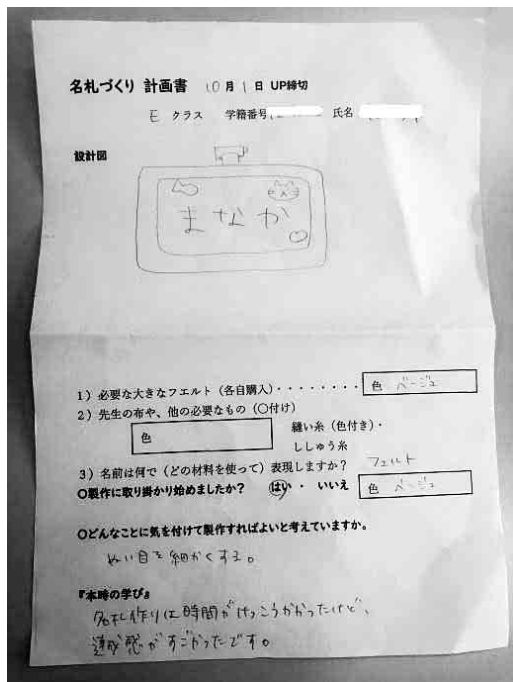 名札づくり 計画書 10月1日 UP締切
E クラス 学籍番号 氏名
設計図
まなか
1）必要な大きなフエルト（各自購入）・・・・・・・・ 色 ベージュ
2）先生の布や、他の必要なもの（〇付け）
色
縫い糸（色付き）・
ししゅう糸
3）名前は何で（どの材料を使って）表現しますか？ フェルト
〇製作に取り掛かり始めましたか？ はい ・ いいえ 色 ベージュ
〇どんなことに気を付けて製作すればよいと考えていますか。
ぬい目を細かくする。
『本時の学び』
名札作りは時間がけっこうかかったけど、
達成感がすごかったです。